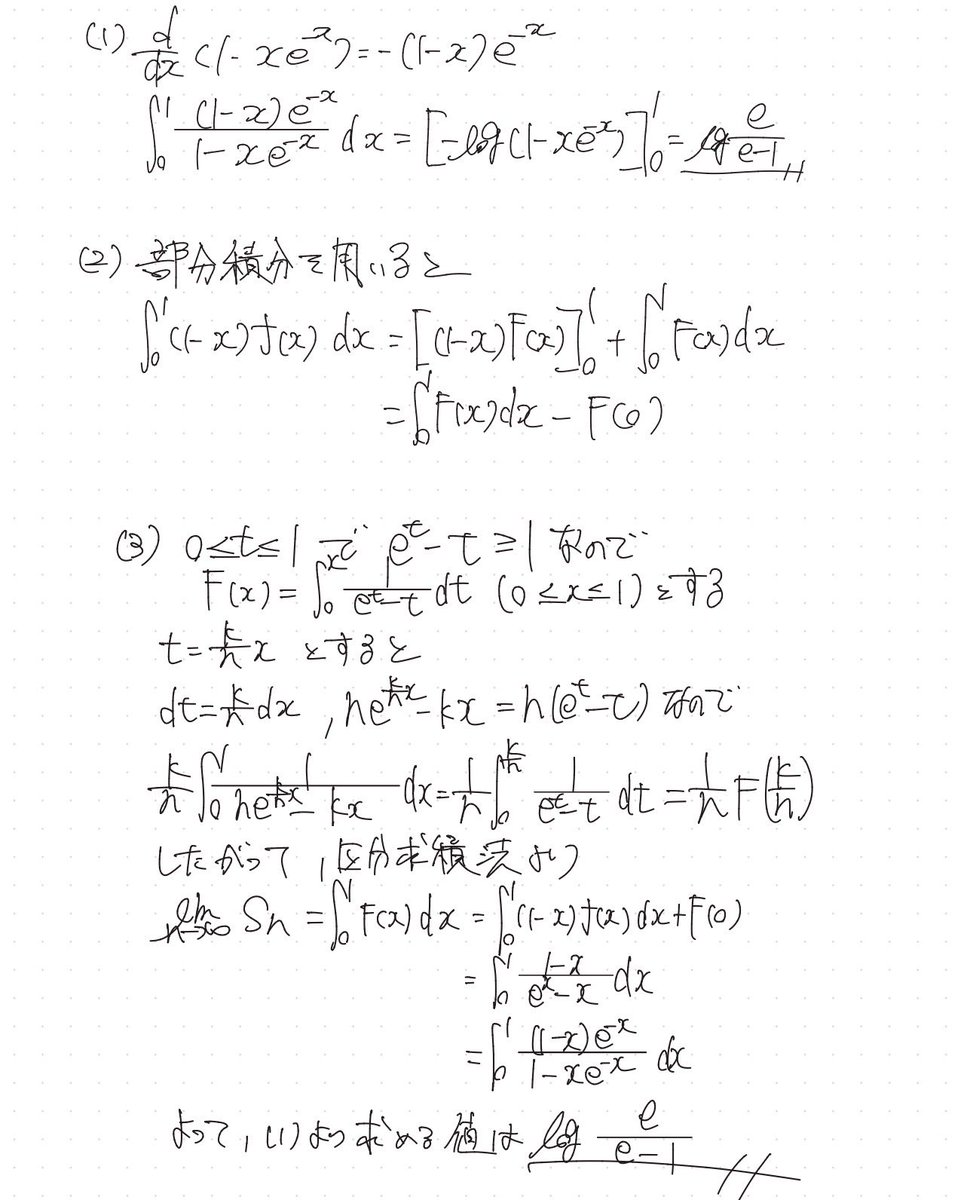 (1) d/dx (1-xe^{-x}) = -(1-x)e^{-x}
∫_0^1 (1-x)e^{-x}/(1-xe^{-x}) dx = [-log(1-xe^{-x})]_0^1 = log e/(e-1)
(2) 部分積分を用いると
∫_0^1 (1-x)f(x) dx = [(1-x)F(x)]_0^1 + ∫_0^1 F(x)dx
= ∫_0^1 F(x)dx - F(0)
(3) 0≤t≤1 で e^t-t≥1 なので
F(x) = ∫_0^x 1/(e^t-t) dt (0≤x≤1) とする
t = k/n x とすると
dt = k/n dx , ne^{k/n x}-kx = n(e^t-t) なので
k/n ∫_0^1 1/(ne^{k/n x}-kx) dx = 1/n ∫_0^{k/n} 1/(e^t-t) dt = 1/n F(k/n)
したがって, 区分求積法より
lim_{n→∞} Sn = ∫_0^1 F(x)dx = ∫_0^1 (1-x)f(x)dx + F(0)
= ∫_0^1 (1-x)/(e^x-x) dx
= ∫_0^1 (1-x)e^{-x}/(1-xe^{-x}) dx
よって, (1)より求める値は log e/(e-1)